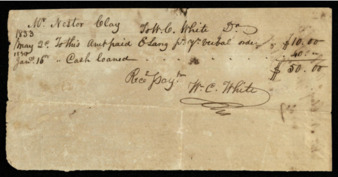 Mr Nestor Clay To W. C. White Dr
1833
May 2d To this Amt paid E Lang pr yr verbal order $10.00
Jany 16th " Cash loaned 40.00
$50.00
Recd Payt
W. C. White